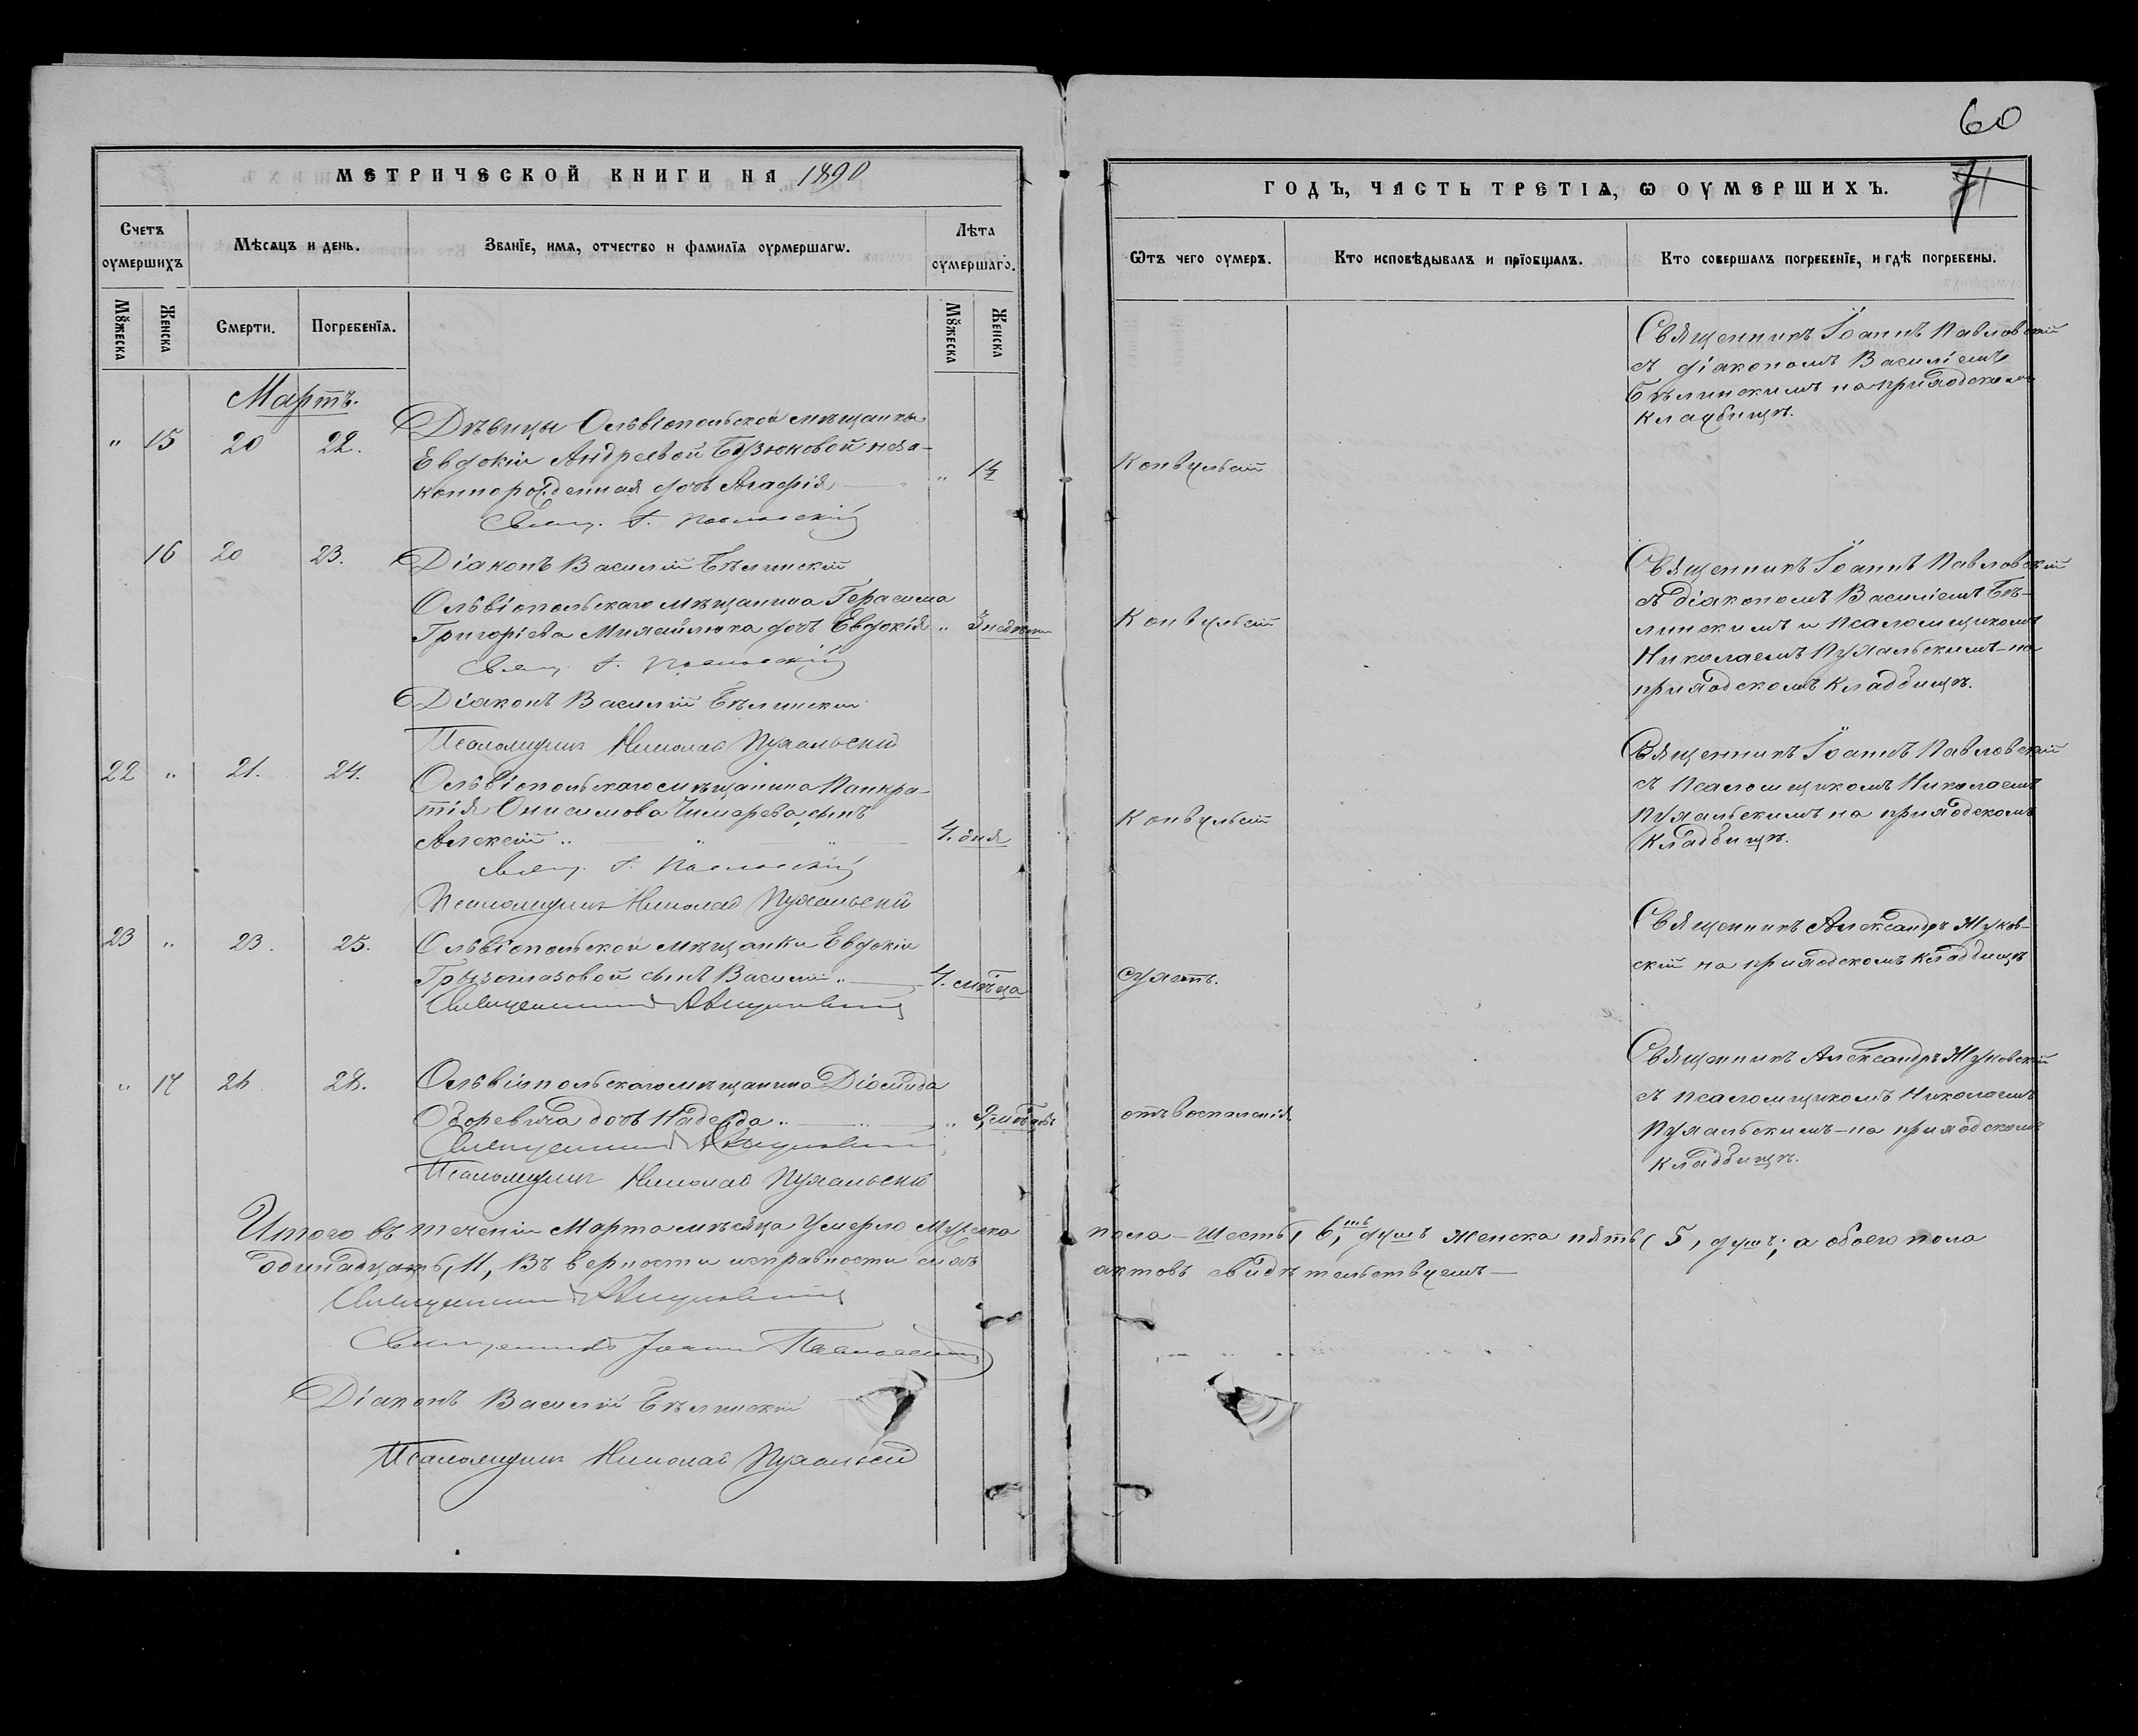 60
МЕТРИЧЕСКОЙ КНИГИ НА 1890
ГОДЪ, ЧАСТЬ ТРЕТІѦ, Ѡ ОУМЕРШИХЪ.
71
Счетъ оумершихъ
Мѣсѧцъ и день.
Званїе, имѧ, отчество и фамилїѧ оурмершагѡ.
Лѣта оумершагѡ.
Ѿтъ чего оумеръ.
Кто исповѣдывалъ и прїовщалъ.
Кто совершалъ погребенїе, и гдѣ погребены.
Мꙋжеска
Женска
Смерти.
Погребенїѧ.
Мꙋжеска
Женска
Мартъ.
" 15 20 22.
Дѣвицы Ольвіопольской мѣщанки
Евдокіи Андреевой Бузюковой неза-
коннорожденная дочь Агафія
" 1½
Свящ. І. Павловскій
Діаконъ Василій Бѣлинскій
Конвульсій
Священникъ Іоаннъ Павловскій
съ діакономъ Василіемъ
Бѣлинскимъ на приходскомъ
кладбищѣ.
16 20 23.
Ольвіопольскаго мѣщанина Герасима
Григоріева Михайлюка дочь Евдокія " 3 недѣли
Свящ. І. Павловскій
Діаконъ Василій Бѣлинскій
Псаломщикъ Николай Пухальскій
Конвульсій
Священникъ Іоаннъ Павловскій
съ діакономъ Василіемъ Бѣ-
линскимъ и псаломщикомъ
Николаемъ Пухальскимъ на
приходскомъ кладбищѣ.
22 " 21. 24.
Ольвіопольскаго мѣщанина Панкра-
тія Онисимова сынъ
Алексій " 4. дня
Свящ. І. Павловскій
Псаломщикъ Николай Пухальскій
Конвульсій
Священникъ Іоаннъ Павловскій
съ псаломщикомъ Николаемъ
Пухальскимъ на приходскомъ
кладбищѣ.
23 " 23. 25.
Ольвіопольской мѣщанки Евдокіи
сынъ Василій " 4. мѣсца
Священникъ
сухоть.
Священникъ Александръ Жуков-
скій на приходскомъ кладбищѣ
" 17 24 28.
Ольвіопольскаго мѣщанина Діомида
дочь Надежда "
Священникъ
Псаломщикъ Николай Пухальскій
отъ воспаленія
Священникъ Александръ Жуковскій
съ псаломщикомъ Николаемъ
Пухальскимъ на приходскомъ
кладбищѣ.
Итого въ теченіи Марта мѣсяца умерло мужеска пола - шесть, 6, душъ женска пять, 5, душъ; а обоего пола
одинадцать, 11, Въ верности и исправности сихъ актовъ свидѣтельствуемъ
Священникъ
Священникъ Іоаннъ Павловскій
Діаконъ Василій Бѣлинскій
Псаломщикъ Николай Пухальскій